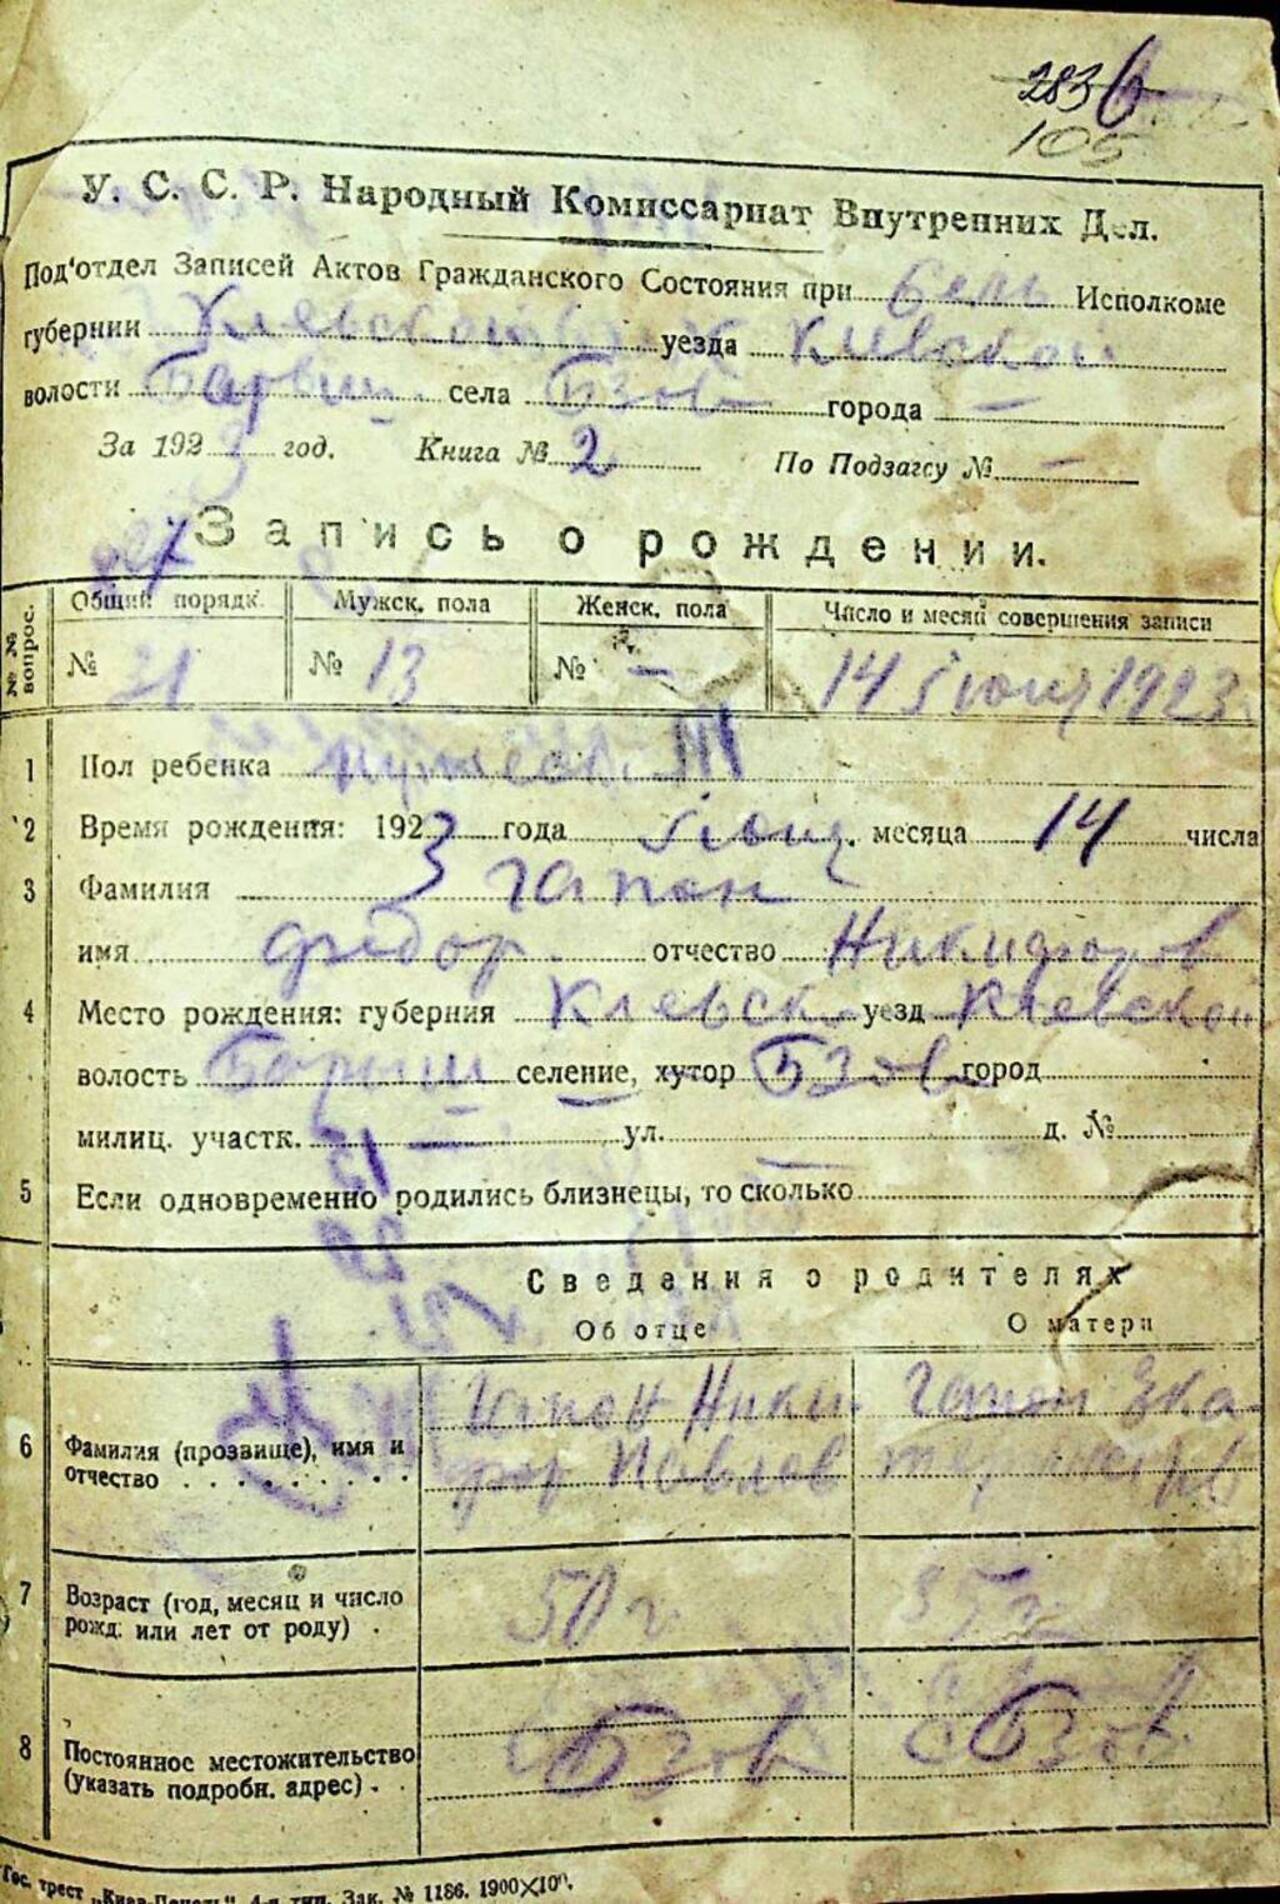 283
105
У. С. С. Р. Народный Комиссариат Внутренних Дел.
Под'отдел Записей Актов Гражданского Состояния при Сель Исполкоме
губернии Киевской уезда Киевской
волости Барыш. села Бзов города —
За 1923 год. Книга № 2 По Подзагсу № —
Запись о рождении.
№№ вопрос. Общий порядк. Мужск. пола Женск. пола Число и месяц совершения записи
№ 31 № 13 № — 14 Июня 1923
1 Пол ребенка мужеск.
2 Время рождения: 1923 года Июня месяца 14 числа
3 Фамилия Гапон
имя Федор отчество Никифоров
4 Место рождения: губерния Киевск уезд Киевской
волость Барыш селение, хутор Бзов город
милиц. участк. — ул. — д. №
5 Если одновременно родились близнецы, то сколько
Сведения о родителях
Об отце О матери
6 Фамилия (прозвище), имя и Гапон Ники Гапон Ека
отчество фор Павлов
7 Возраст (год, месяц и число 50 г 35 г
рожд. или лет от роду)
8 Постоянное местожительство с Бзов с Бзов
(указать подробн. адрес)
Гос. трест „Киев-Печать“ 4-я тип. Зак. № 1186. 1900×10